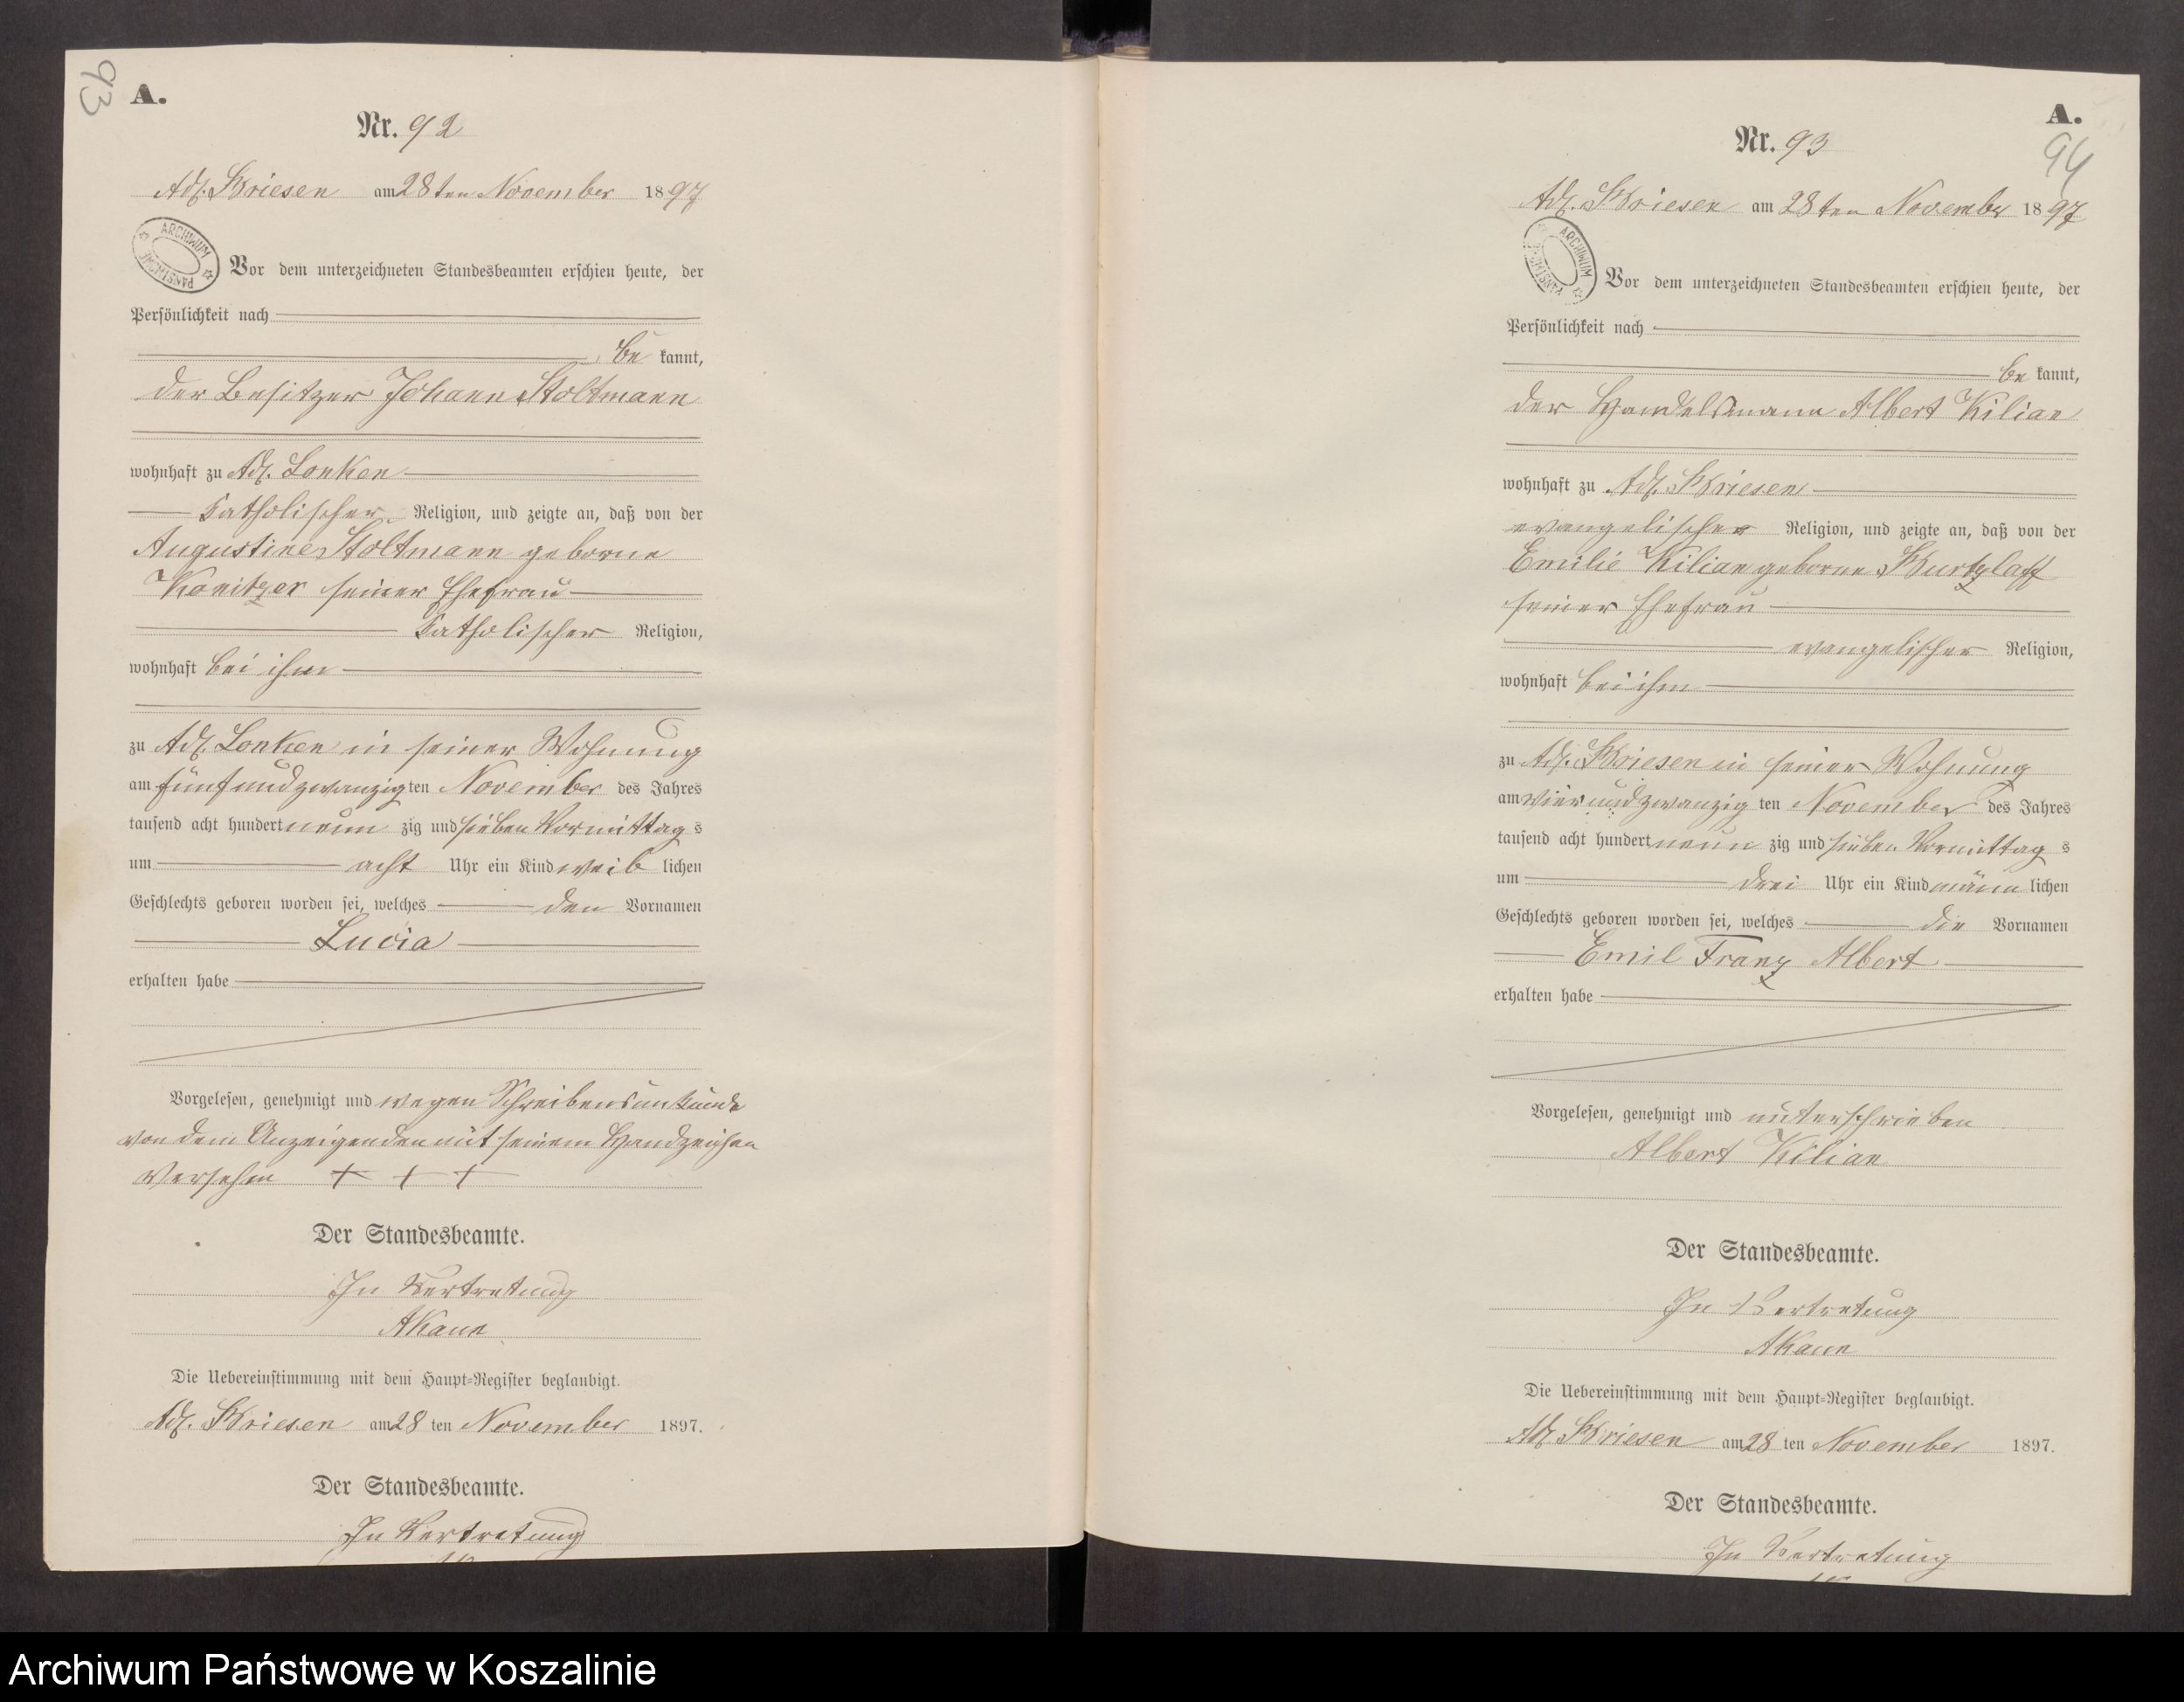 93
A.
Nr. 92
Adl. Briesen am 28ten November 1897
ARCHIWUM PAŃSTWOWE
Vor dem unterzeichneten Standesbeamten erschien heute, der
Persönlichkeit nach
be kannt,
der Besitzer Johann Stoltmann
wohnhaft zu Adl. Lonken
katholischer Religion, und zeigte an, daß von der
Augustine Stoltmann geborne
Konitzer seiner Ehefrau
katholischer Religion,
wohnhaft bei ihm
zu Adl. Lonken in seiner Wohnung
am fünfundzwanzigten November des Jahres
tausend acht hundert neun zig und sieben Vormittag s
um acht Uhr ein Kind weib lichen
Geschlechts geboren worden sei, welches den Vornamen
Lucia
erhalten habe
Vorgelesen, genehmigt und wegen Schreibensunkunde
von dem Anzeigenden mit seinem Handzeichen
versehen + + +
Der Standesbeamte.
In Vertretung
AKann
Die Uebereinstimmung mit dem Haupt-Register beglaubigt.
Adl. Briesen am 28 ten November 1897.
Der Standesbeamte.
In Vertretung
A.
Nr. 93
94
Adl. Briesen am 28ten November 1897
ARCHIWUM PAŃSTWOWE
Vor dem unterzeichneten Standesbeamten erschien heute, der
Persönlichkeit nach
be kannt,
der Handelsmann Albert Kilian
wohnhaft zu Adl. Briesen
evangelischer Religion, und zeigte an, daß von der
Emilie Kilian geborne Kurtzlaff
seiner Ehefrau
evangelischer Religion,
wohnhaft bei ihm
zu Adl. Briesen in seiner Wohnung
am vierundzwanzig ten November des Jahres
tausend acht hundert neun zig und sieben Vormittag s
um drei Uhr ein Kind männ lichen
Geschlechts geboren worden sei, welches die Vornamen
Emil Franz Albert
erhalten habe
Vorgelesen, genehmigt und unterschrieben
Albert Kilian
Der Standesbeamte.
In Vertretung
AKann
Die Uebereinstimmung mit dem Haupt-Register beglaubigt.
Adl. Briesen am 28 ten November 1897.
Der Standesbeamte.
In Vertretung
Archiwum Państwowe w Koszalinie